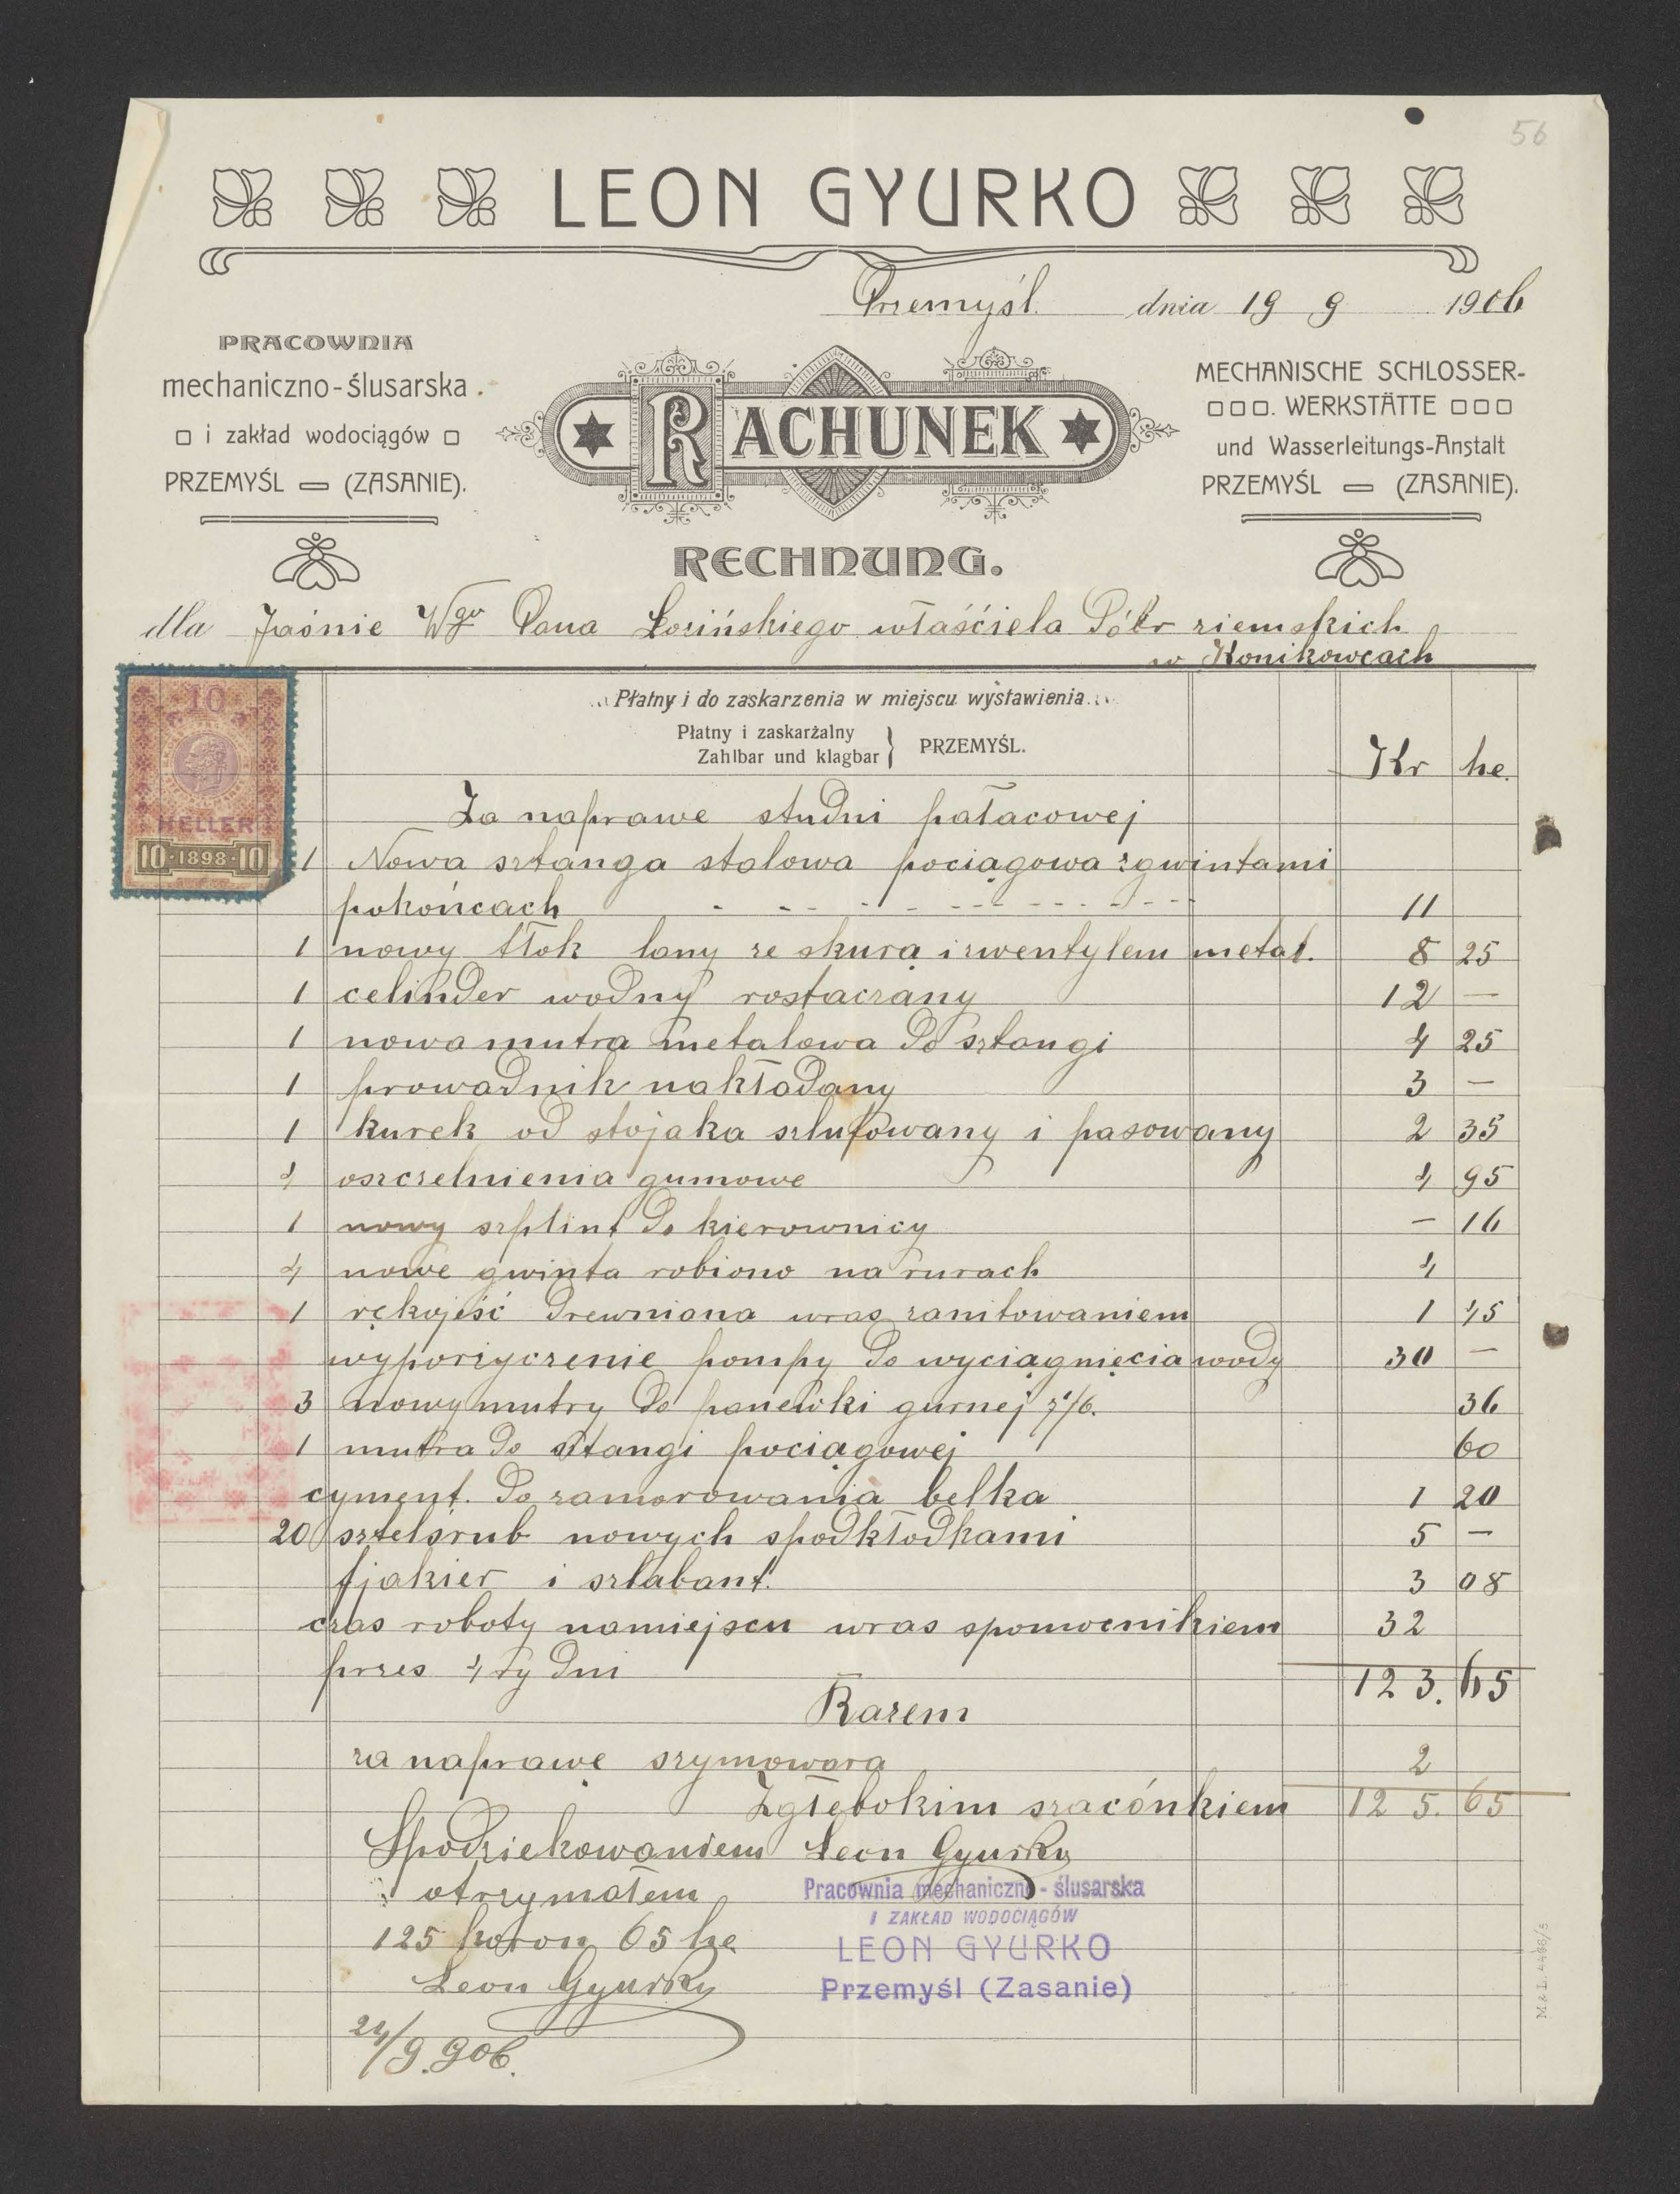 56
LEON GYURKO
Przemyśl. dnia 19 9 1906
PRACOWNIA
mechaniczno-ślusarska
i zakład wodociągów
PRZEMYŚL — (ZASANIE).
RACHUNEK
MECHANISCHE SCHLOSSER-
WERKSTÄTTE
und Wasserleitungs-Anstalt
PRZEMYŚL — (ZASANIE).
RECHNUNG.
dla Jaśnie Wgo Pana Łozińskiego właśćiela Półr ziemskich
w Konikowcach
10
HELLER
10·1898·10
Płatny i do zaskarzenia w miejscu wystawienia
Płatny i zaskarżalny
Zahlbar und klagbar } PRZEMYŚL.
Kr he.
Za naprawe studni pałacowej
1 Nowa sztanga stalowa pociągowa zgwintami
pokońcach 11
1 nowy tłok lany ze skurą i zwentylem metal. 8 25
1 celinder wodny rostaczany 12 —
1 nowa mutra metalowa do sztangi 4 25
1 prowadnik nakładany 3 —
1 kurek od stojaka szlufowany i pasowany 2 35
4 oszczelnienia gumowe 4 95
1 nowy szplint do kierownicy — 16
4 nowe gwinta robiono na rurach 4
1 rękojeść drewniana wraz zanitowaniem 1 45
wyporzyczenie pompy do wyciągnięcia wody 30 —
3 nowy mutry do panewki gurnej 36
1 mutra do sztangi pociągowej 60
cyment. do zamorowania belka 1 20
20 sztelśrub nowych spodkłodkami 5 —
fjakier i szlabant. 3 08
czas roboty namiejscu wras spomocnikiem 32
przes 4 ry dni
123. 65
Razem
za naprawę szymowara 2
Zgłębokim szacónkiem 125. 65
Spodziekowaniem Leon Gyurko
otrzymałem
Pracownia mechaniczno-ślusarska
I ZAKŁAD WODOCIĄGÓW
125 koron 65 he
LEON GYURKO
Leon Gyurko
Przemyśl (Zasanie)
24/9.906.
M & L 4498/5